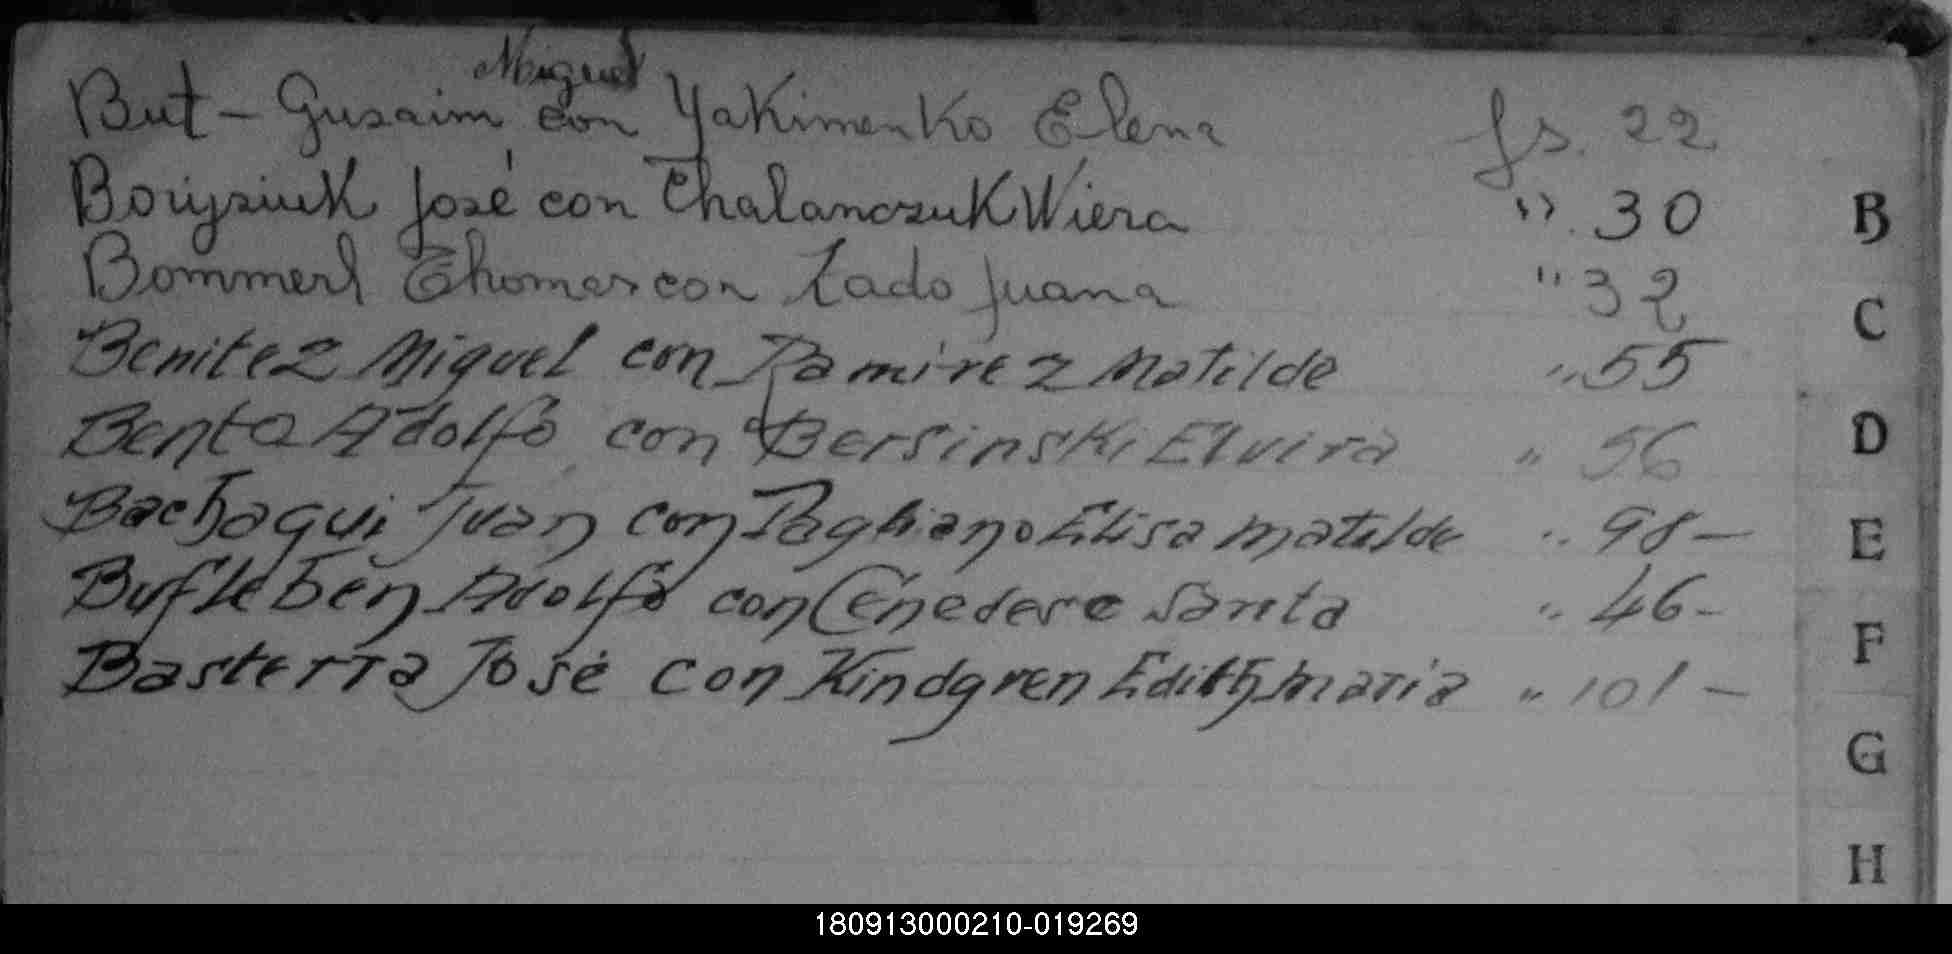 Miguel
But - Gusaim con Yakimenko Elena fs. 22
Boiysiuk José con Chalanczuk Wiera " 30
Bommerl Thomas con Lado Juana " 32
Benitez Miguel con Ramirez Matilde " 55
Bento Adolfo con Bersinski Elvira " 56
Bachaqui Juan con Pagliano Elisa matilde " 98 -
Bufleben Adolfo con Cenedese Santa " 46 -
Basterra José con Kindgren Edith maria " 101 -
B
C
D
E
F
G
H
180913000210-019269